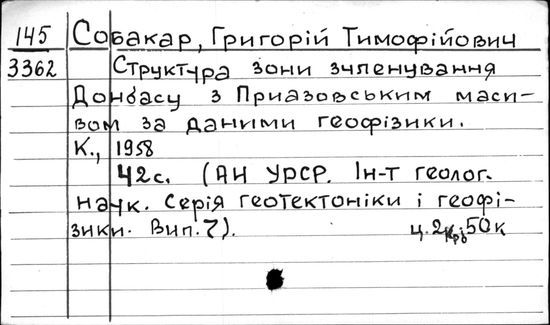 145 Собакар, Григорій Тимофійович
3362 Структура зони зчленування
Донбасу з Приазовським маси-
вом за даними геофізики.
К., 1958
42с. (АН УРСР. Ін-т геолог.
наук. Серія геотектоніки і геофі-
зики. Вип. 7). ц. 2крб50к